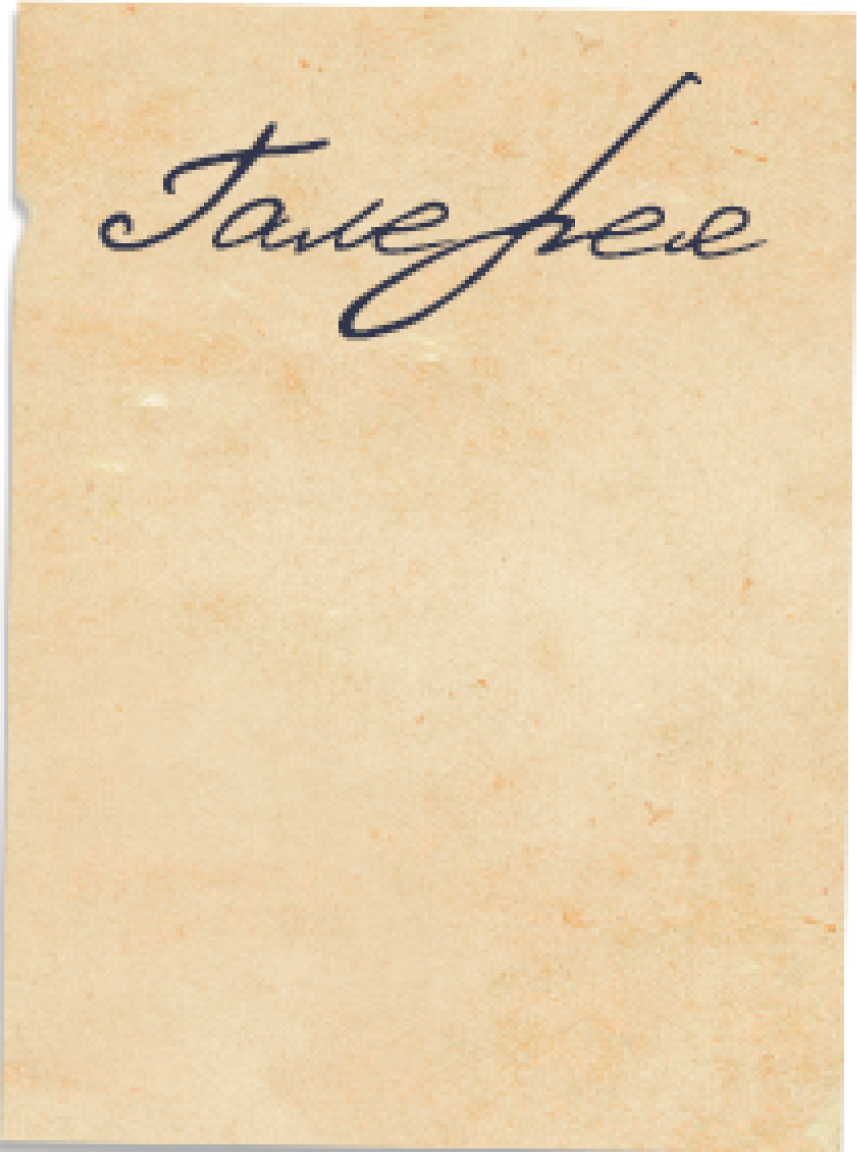 Галерея